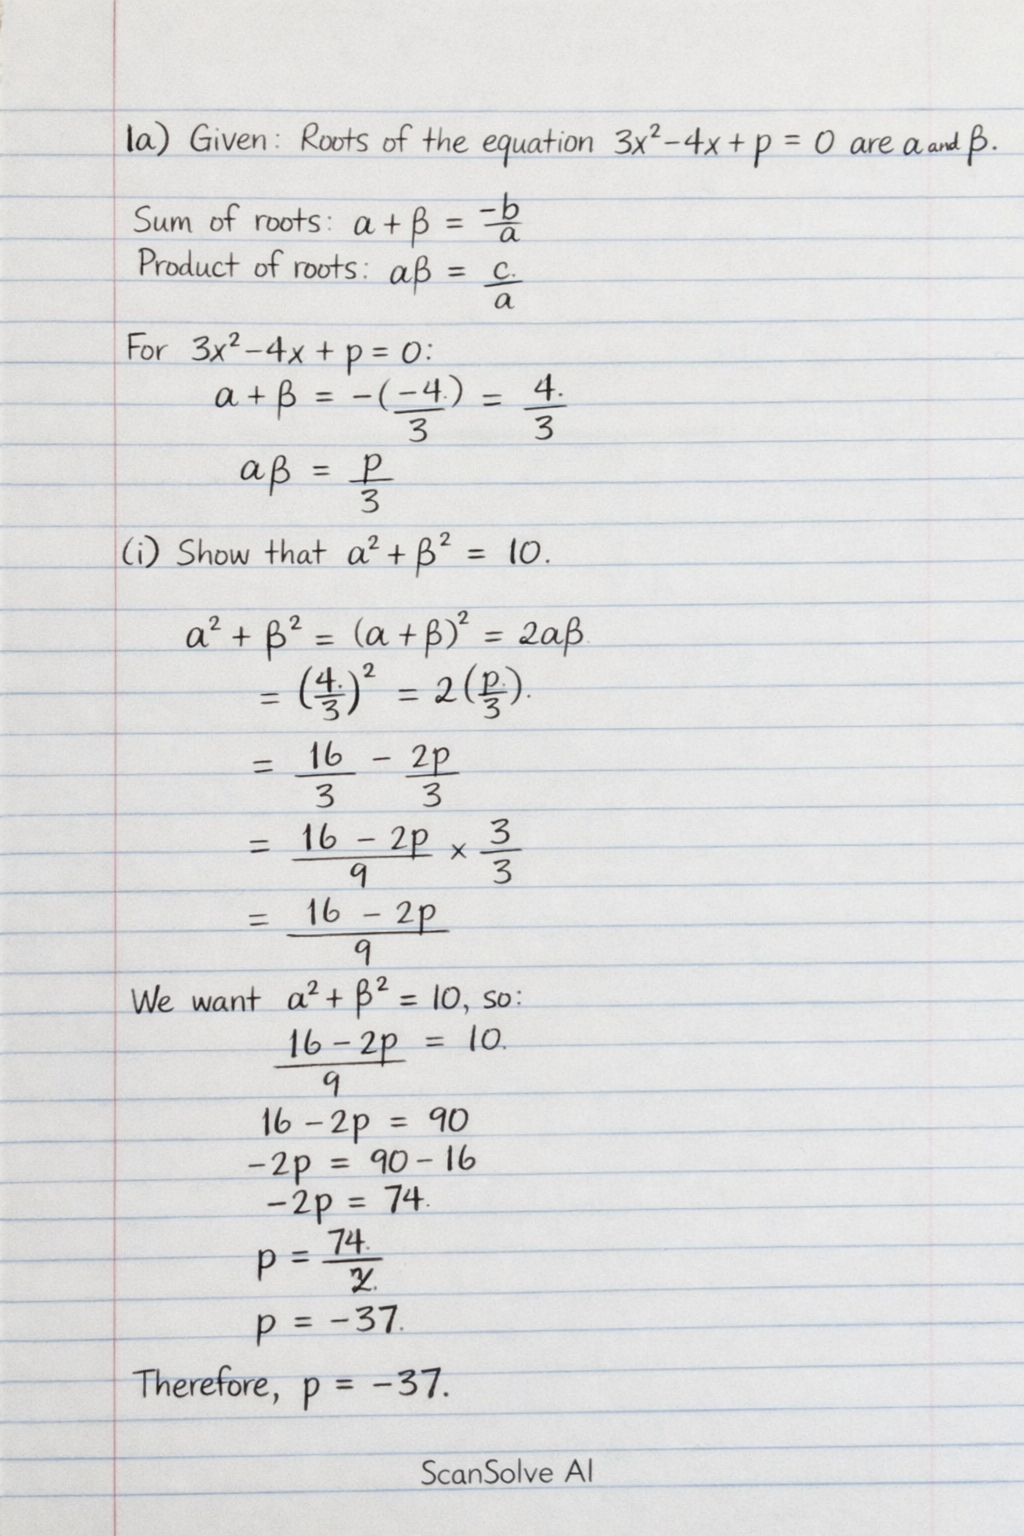 1a) Given: Roots of the equation 3x² - 4x + p = 0 are α and β.
Sum of roots: α + β = -b/a
Product of roots: αβ = c./a
For 3x² - 4x + p = 0:
α + β = -(-4.)/3 = 4./3
αβ = p/3
(i) Show that α² + β² = 10.
α² + β² = (α + β)² = 2αβ.
= (4./3)² = 2(p./3).
= 16/3 - 2p/3
= (16 - 2p)/9 × 3/3
= (16 - 2p)/9
We want α² + β² = 10, so:
(16 - 2p)/9 = 10.
16 - 2p = 90
-2p = 90 - 16
-2p = 74.
p = 74./2.
p = -37.
Therefore, p = -37.
ScanSolve AI